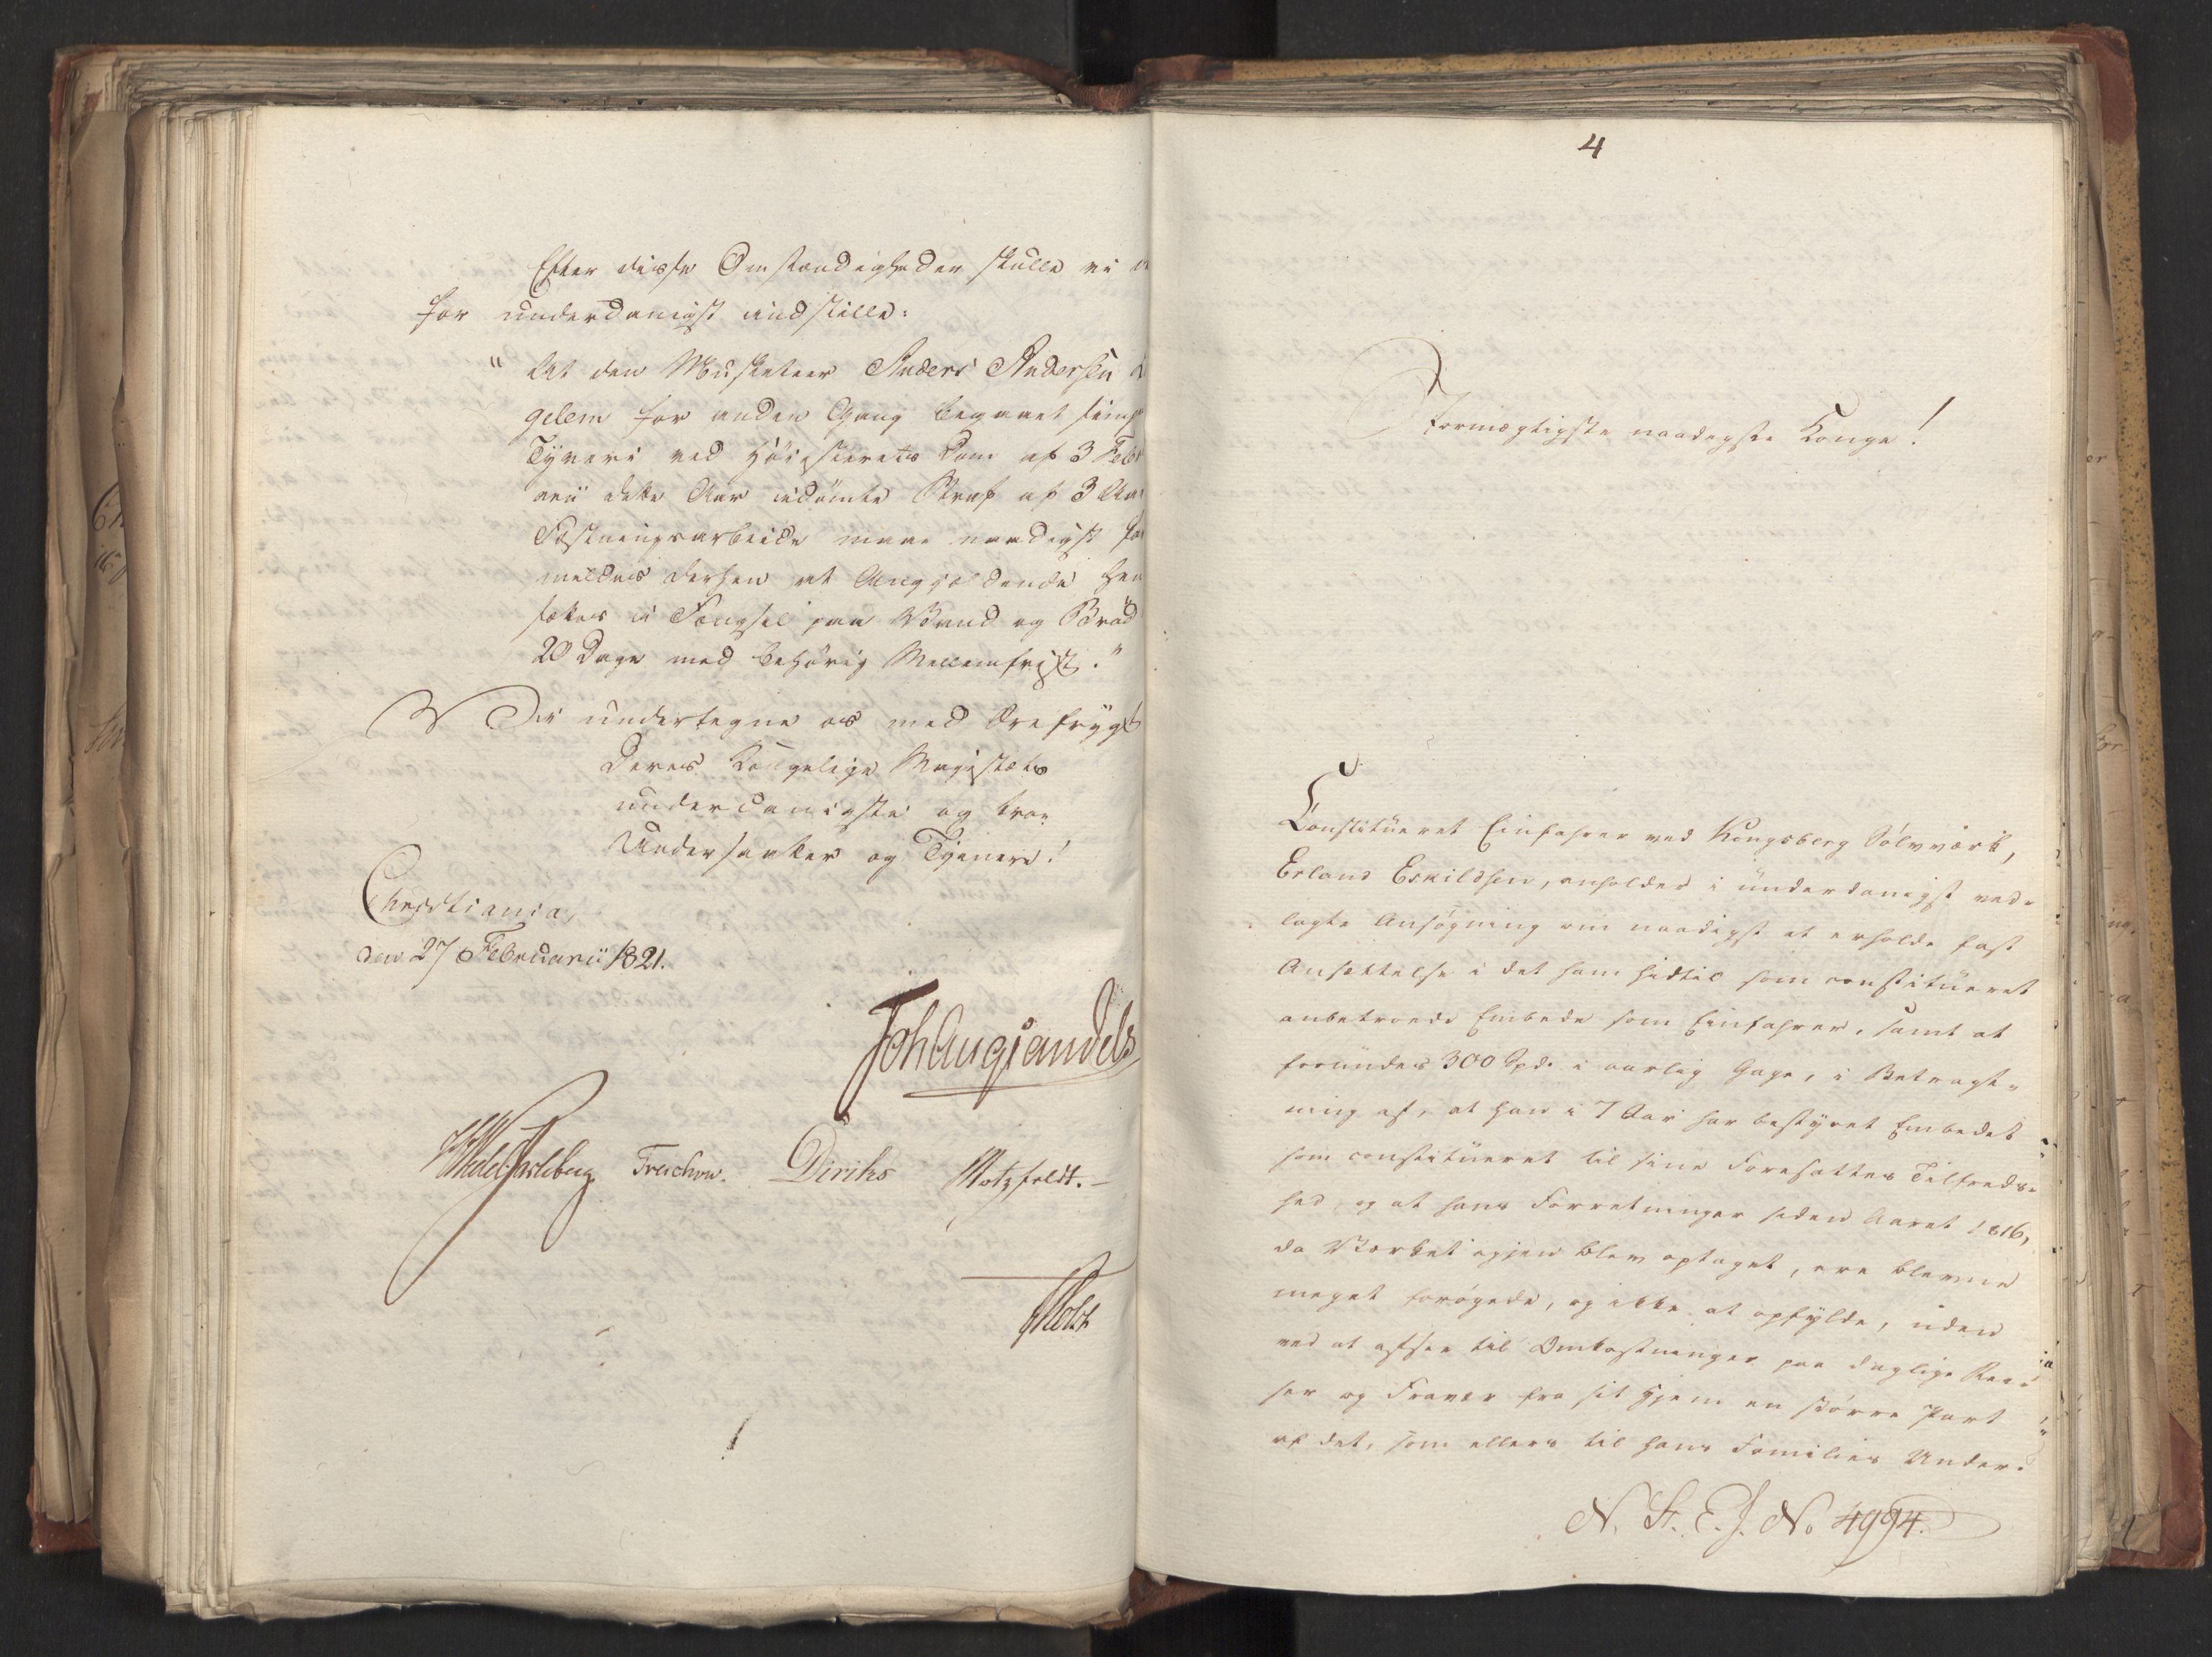 Efter disse Omstændigheder skulle vi
for underdanigst indstille:
"At den Musketeer Anders Andersen
gelem for anden Gang begaaet simp
Tyveri ved Høiesterets Dom af 3 Febr
arii dette Aar idømte Straf af 3 Aar
Fæstningsarbeide maae naadigst for
mildes derhen at Angjældende hen
sættes i Fængsel paa Vand og Brød
20 Dage med behørig Mellemfrist."
Vi undertegne os med Ærefrygt
Deres Kongelige Majestæts
underdanigste og troe
Undersaatter og Tjenere!
Christiania,
den 27 Februarii 1821.
Joh Aug Sandels
Wedel Jarlsberg Treschow. Diriks Motzfeldt.-
Holst
4
Stormægtigste naadigste Konge!
Constitueret Einfahrer ved Kongsberg Sølvværk,
Erland Eskildsen, anholder i underdanigst ved-
lagte Ansøgning om naadigst at erholde fast
Ansættelse i det ham hidtil som constitueret
anbetroede Embede som Einfahrer, samt at
forundes 300 Spd. i aarlig Gage, i Betragt-
ning af, at han i 7 Aar har bestyret Embedet
som constitueret til sine Foresattes Tilfreds-
hed, og at hans Forretninger siden Aaret 1816,
da Værket igjen blev optaget, ere blevne
meget forøgede, og ikke at opfylde, uden
ved at afsee til Omkostninger paa daglige Rei-
ser og Fravær fra sit Hjem en større Part
af det, som ellers til hans Families Under-
N. St. E. J. No 4994.